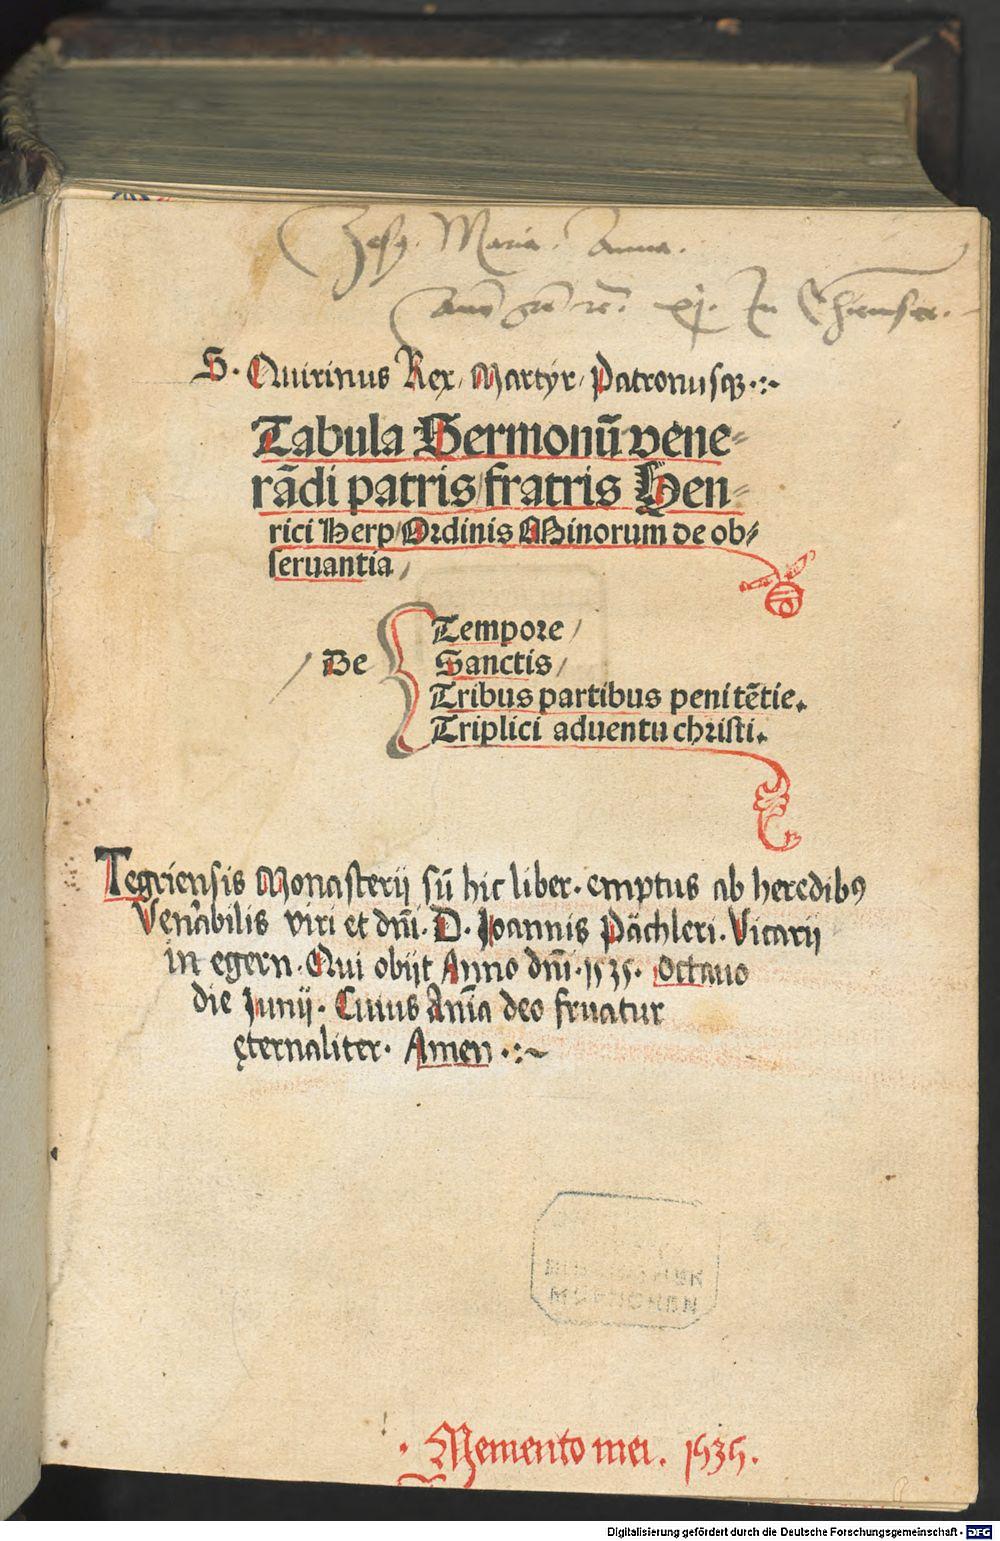 Jesꝰ. Maria. Anna.
S. Quirinus Rex, Martyr, Patronusqꝫ.:~
Tabula Sermonū vene-
rādi patris/fratris Hen-
rici Herp/Ordinis Minorum de ob-
seruantia/
De
Tempore/
Sanctis/
Tribus partibus penitētie.
Triplici aduentu christi.
Tegriensis Monasterij sū hic liber. emptus ab heredibꝰ
Venābilis viri et dn̄i. D. Joannis Pächleri. Vicarij
in egern. Qui obijt Anno dn̄i. 1535. Octauo
die Junij. Cuius Ani̅a deo fruatur
ęternaliter. Amen .:~
MUENCHEN
. Memento mei. 1535.
Digitalisierung gefördert durch die Deutsche Forschungsgemeinschaft - DFG